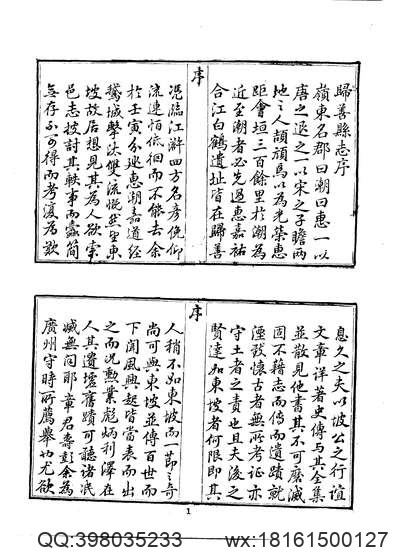 歸善縣志序
嶺東名郡曰潮曰惠一以
唐之退之一以宋之子瞻兩
地之人頡頏焉以為光榮惠
距會垣三百餘里於潮為
近至潮者必先過惠嘉祐
合江白鶴遺址皆在歸善
序
況臨江滸四方名彥俛仰
流連怕低徊而不能去余
於壬寅分巡惠潮嘉道經
鵞城擊汰雙流慨然望東
坡故居想見其為人欲索
邑志披討其軼事而蠹簡
無存不可得而考復為歎
息久之夫以坡公之行誼
文章詳著史傳与其全集
並散見他書其不可磨滅
固不藉志而傳而遺蹟就
湮致懷古者無所考证亦
守土者之責也且夫後之
賢達如東坡者何限即其
序
人稍不如東坡而一節之奇
尚可與東坡並傳百世而
下聞風興起皆當表而出
之而況勲業彪炳利澤在
人其遺壠舊蹟可聽諸泯
滅無聞耶章君壽彭余為
廣州守時所薦舉也尤欲
1
QQ:398035233
wx:18161500127